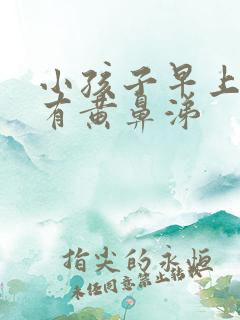 小孩子早上
有黄鼻涕
指尖的永恒
未经同意禁止转载